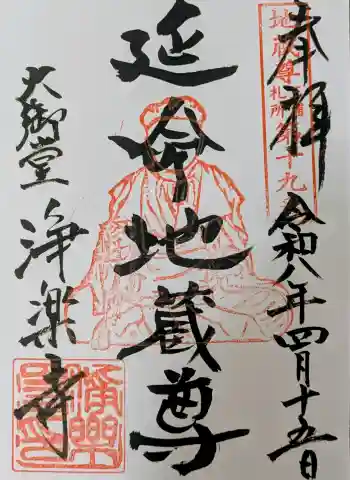 奉拝
令和八年四月十五日
地蔵尊
札所
第十九
延命地蔵尊
大御堂
浄楽寺